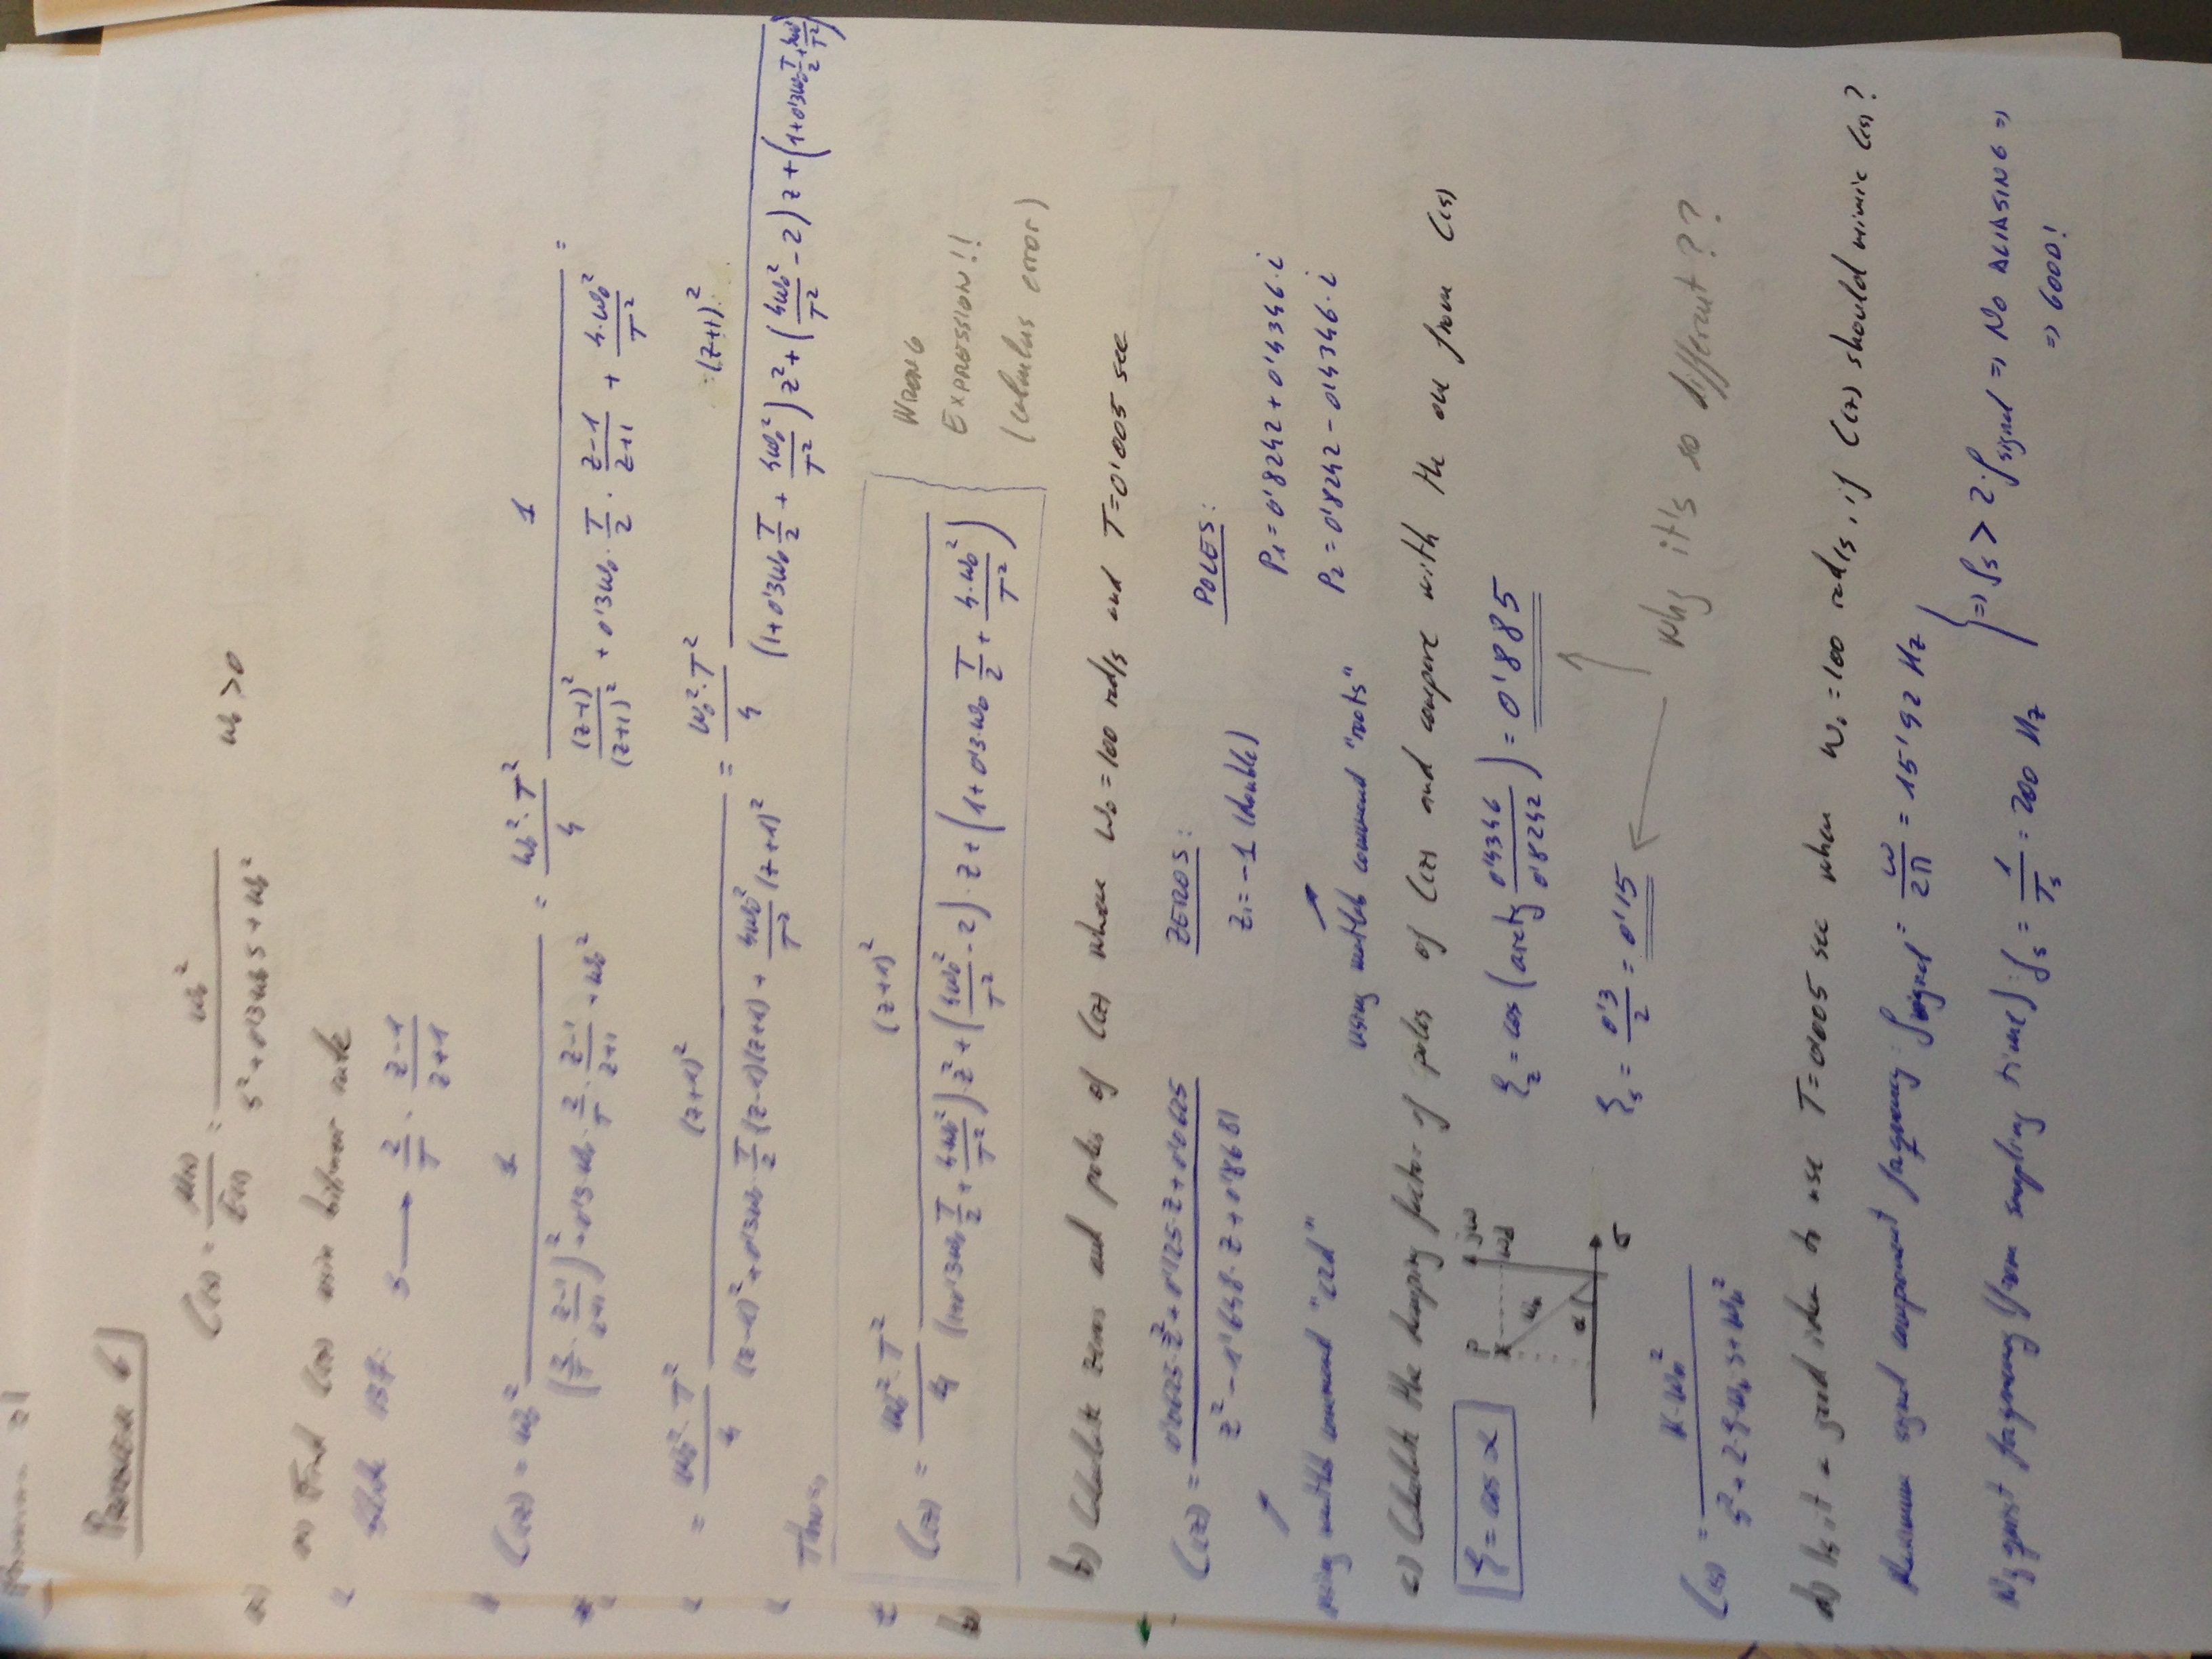 PROBLEM 6
C(s) = U(s)/E(s) = ω₀²/(s² + 0'3ω₀s + ω₀²) ω₀ > 0
a) Find C(z) usin bilinear rule
Slide 137: s → 2/T · (z-1)/(z+1)
C(z) = ω₀² 1/((2/T · (z-1)/(z+1))² + 0'3·ω₀·2/T·(z-1)/(z+1) + ω₀²) = ω₀²·T²/4 1/((z-1)²/(z+1)² + 0'3ω₀·T/2·(z-1)/(z+1) + 4·ω₀²/T²) =
= ω₀²·T²/4 (z+1)²/((z-1)² + 0'3ω₀·T/2(z-1)(z+1) + 4ω₀²/T²(z+1)²) = ω₀²·T²/4 (z+1)²/((1+0'3ω₀T/2 + 4ω₀²/T²)z² + (4ω₀²/T² - 2)z + (1+0'3ω₀T/2 + 4ω₀²/T²))
Thus,
C(z) = ω₀²·T²/4 (z+1)²/((1+0'3ω₀T/2 + 4·ω₀²/T²)·z² + (4ω₀²/T² - 2)·z + (1+0'3·ω₀T/2 + 4·ω₀²/T²))
WRONG
EXPRESSION!!
(calculus error)
b) Calculate zeros and poles of C(z) where ω₀=100 rad/s and T=0'005 sec
C(z) = (0'0625·z² + 0'125·z + 0'0625)/(z² - 1'648·z + 0'8681)
ZEROS:
z₁=-1 (double)
POLES:
P₁=0'8242+0'4346·i
P₂=0'8242-0'4346·i
using matlab command "c2d"
using matlab command "roots"
c) Calculate the damping factor of poles of C(z) and compare with the one from C(s)
ξ = cos α
P jω
ωd
ωn
α
σ
ξz = cos(arctg 0'4346/0'8242) = 0'885
ξs = 0'3/2 = 0'15
Why it's so different??
C(s) = K·ωn²/(s² + 2·ξ·ωn·s + ωn²)
d) Is it a good idea to use T=0'005 sec when ω₀=100 rad/s, if C(z) should mimic C(s)?
Maximum signal component frequency: fsignal = ω/2π = 15'92 Hz
Nyquist frequency (from sampling time): fs = 1/Ts = 200 Hz
⇒ fs > 2·fsignal ⇒ NO ALIASING ⇒
⇒ GOOD!